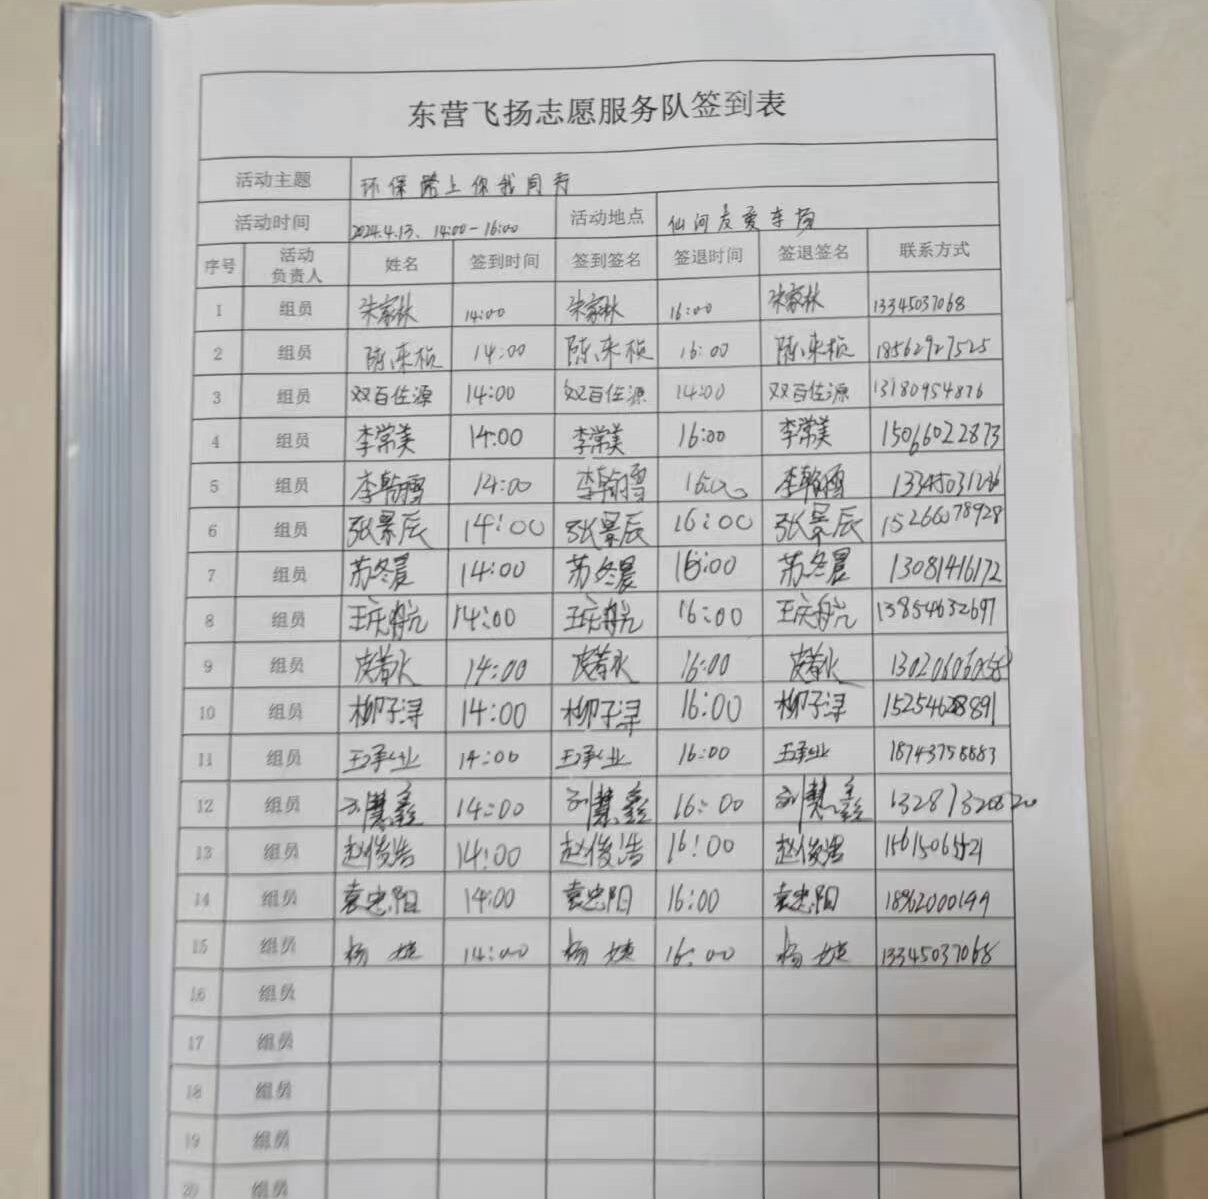 东营飞扬志愿服务队签到表
活动主题 环保路上你我同行
活动时间 2024.4.13、14:00-16:00 活动地点 仙河友爱车场
序号 活动负责人 姓名 签到时间 签到签名 签退时间 签退签名 联系方式
1 组员 朱家林 14:00 朱家林 16:00 朱家林 13345037068
2 组员 陈来桢 14:00 陈来桢 16:00 陈来桢 18562927525
3 组员 双百佐源 14:00 双百佐源 14:00 双百佐源 13180954876
4 组员 李常美 14:00 李常美 16:00 李常美 15066022873
5 组员 李翰雪 14:00 李翰雪 16:00 李翰雪
6 组员 张景辰 14:00 张景辰 16:00 张景辰 15266078928
7 组员 苏冬晨 14:00 苏冬晨 16:00 苏冬晨 13081416172
8 组员 王庆航 14:00 王庆航 16:00 王庆航 13854632697
9 组员 14:00 16:00
10 组员 柳子浔 14:00 柳子浔 16:00 柳子浔 15254628891
11 组员 王承业 14:00 王承业 16:00 王承业
12 组员 刘慧鑫 14:00 刘慧鑫 16:00 刘慧鑫
13 组员 赵俊浩 14:00 赵俊浩 16:00 赵俊浩
14 组员 袁忠阳 14:00 袁忠阳 16:00 袁忠阳 18962000199
15 组员 杨婕 14:00 杨婕 16:00 杨婕 13345037068
16 组员
17 组员
18 组员
19 组员
20 组员